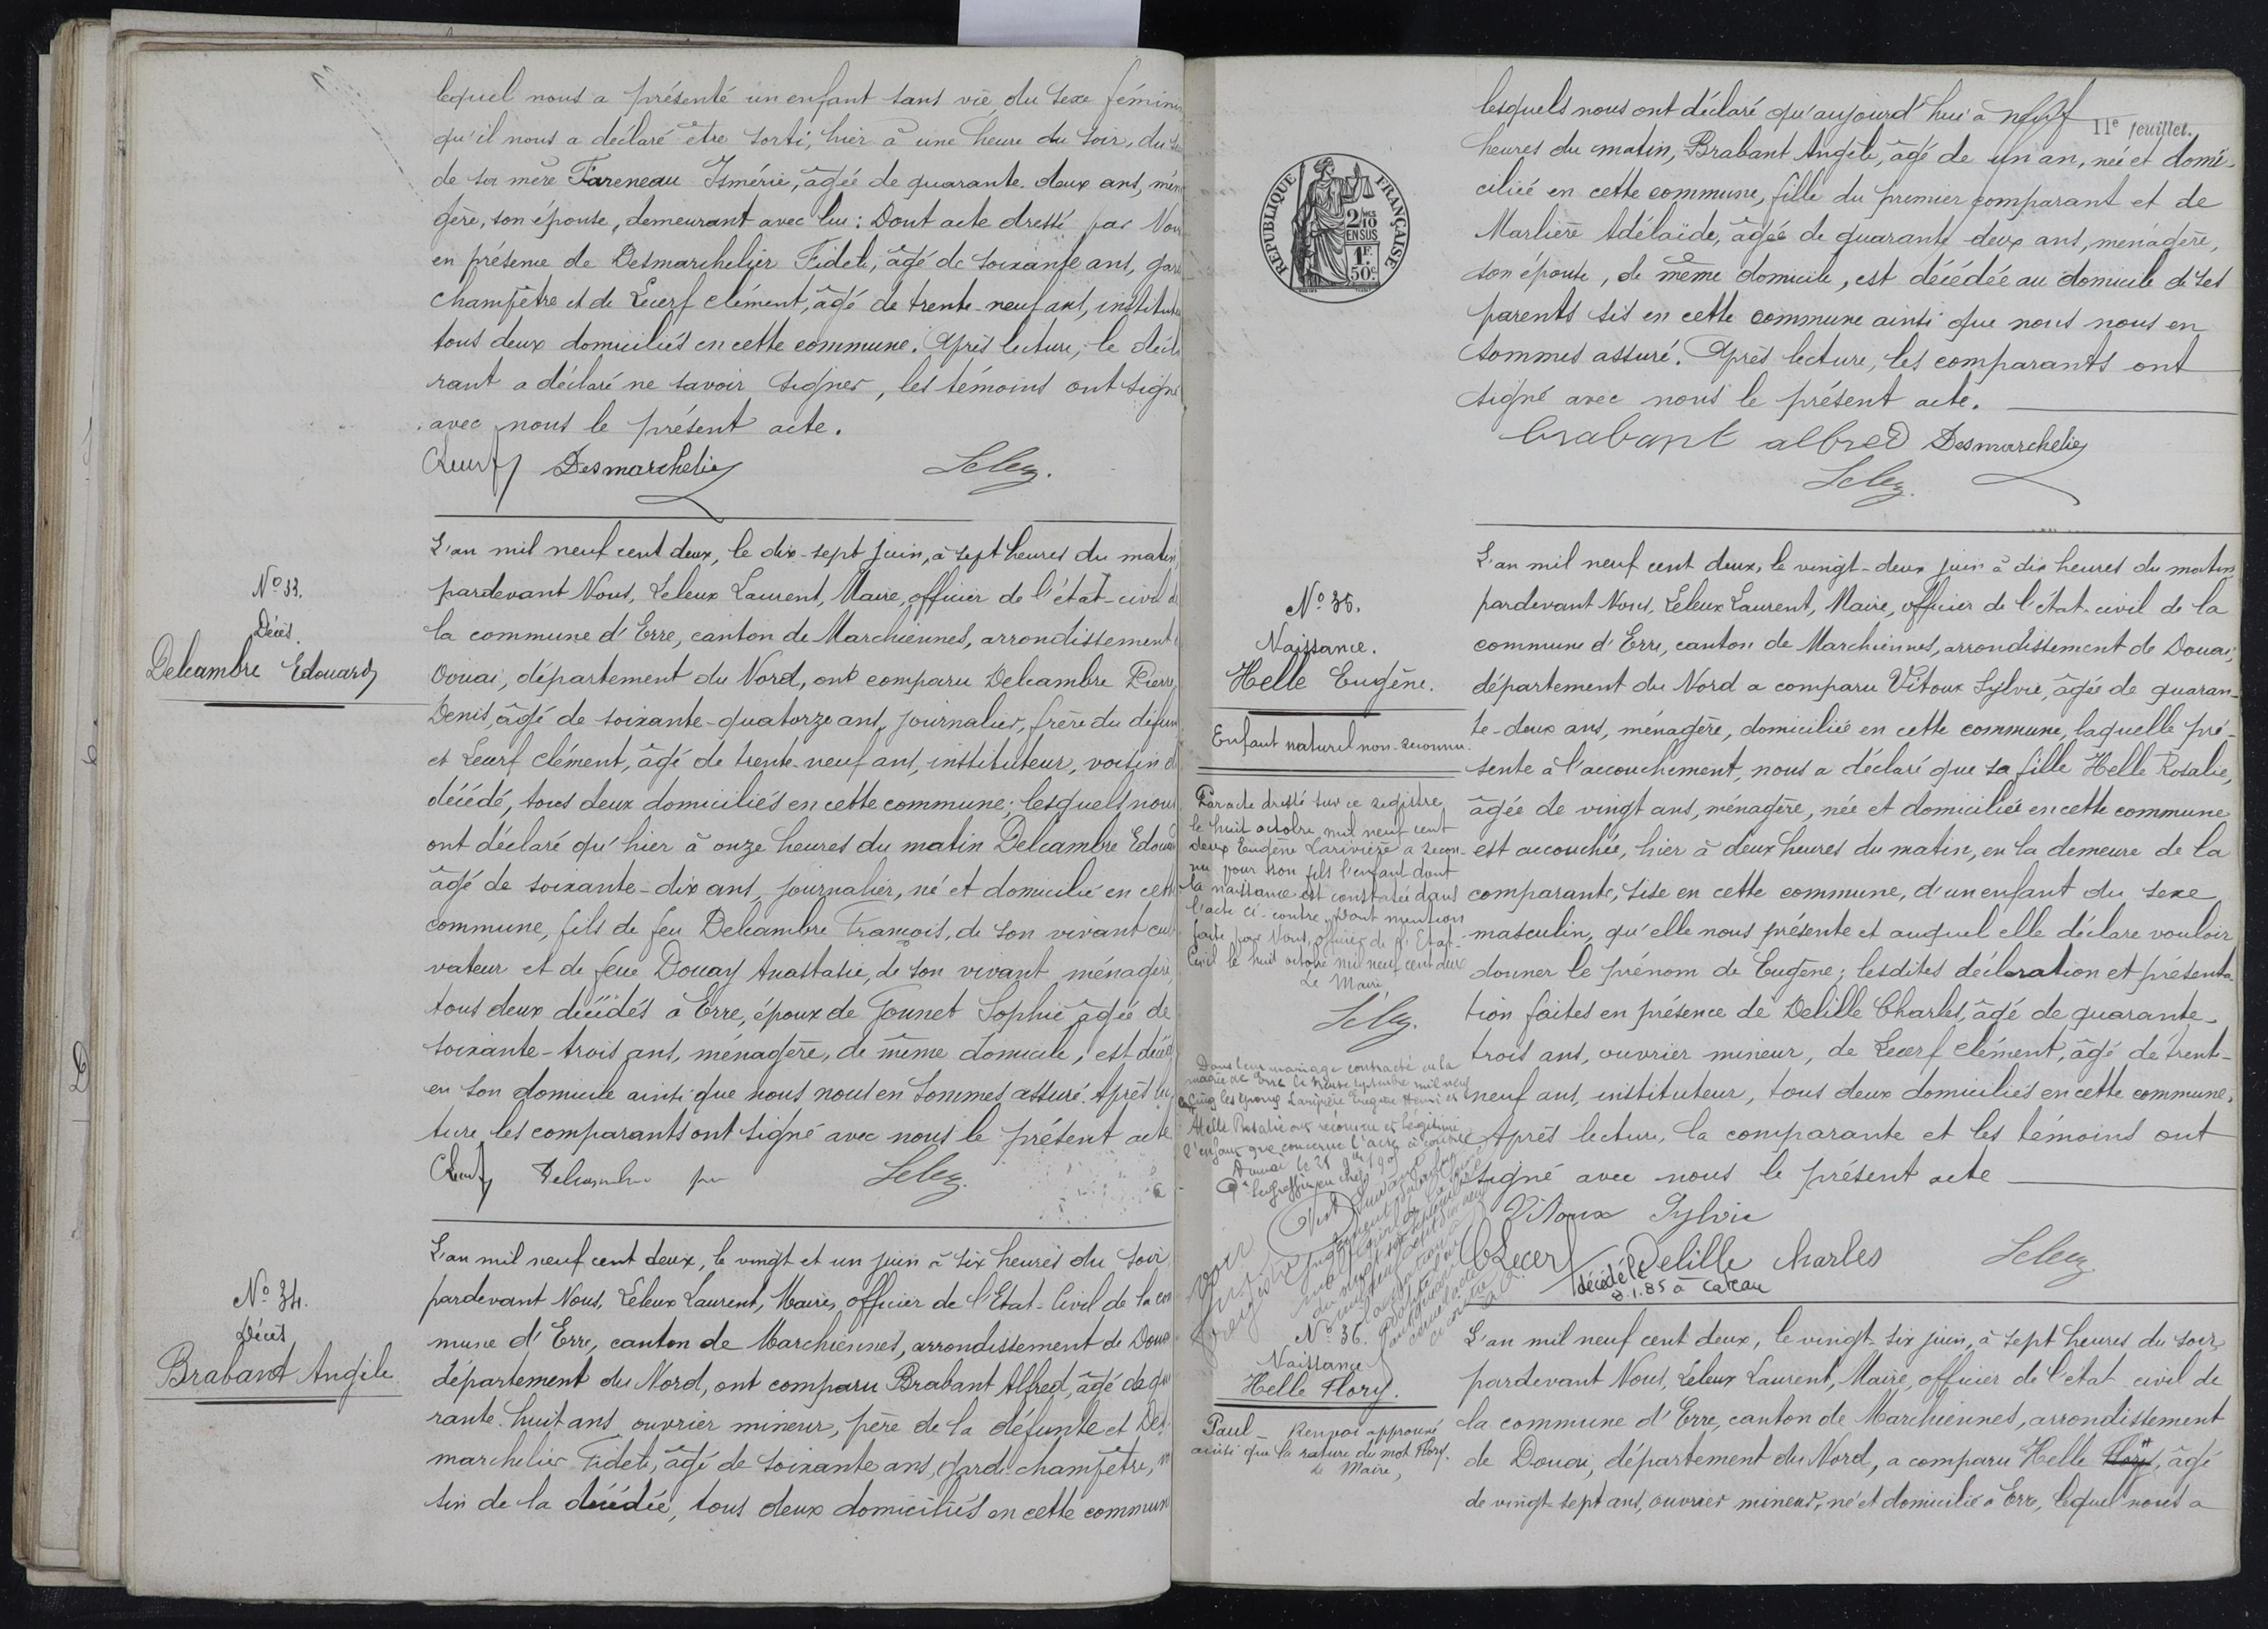 lequel nous a présenté un enfant sans vie, du sexe féminin
qu'il nous a déclaré être sorti, hier à une heure du soir, du
de sa mère Fareneau Ismérie, âgée de quarante-deux ans, mén
gère, son épouse, demeurant avec lui : Dont acte dressé par Nous
en présence de Desmarchelier Fidèle, âgé de soixante ans, gar
champêtre et de Lecerf Clément, âgé de trente-neuf ans, institute
tous deux domiciliés en cette commune. Après lecture, le décla
rant a déclaré ne savoir signer, les témoins ont signé
avec nous le présent acte.
Desmarchelier
N° 33.
Décès.
Delcambre Edouard
L'an mil neuf cent deux, le dix-sept juin, à sept heures du matin,
pardevant Nous, Leleux Laurent, Maire, officier de l'état-civil de
la commune d'Erre, canton de Marchiennes, arrondissement
Douai, département du Nord, ont comparu Delcambre Pierre
Denis, âgé de soixante-quatorze ans, journalier, frère du défun
et Lecerf Clément, âgé de trente-neuf ans, instituteur, voisin d
décédé, tous deux domiciliés en cette commune ; lesquels nous
ont déclaré qu'hier à onze heures du matin Delcambre Edouard
âgé de soixante-dix ans, journalier, né et domicilié en cette
commune, fils de feu Delcambre François, de son vivant cul
vateur et de feue Douay Anastasie, de son vivant ménagère,
tous deux décédés à Erre, époux de Gounet Sophie âgée de
soixante-trois ans, ménagère, de même domicile, est décédé
en son domicile ainsi que nous nous en sommes assuré. Après lec
ture les comparants ont signé avec nous le présent acte
N° 34.
Décès
Brabant Angèle
L'an mil neuf cent deux, le vingt et un juin à six heures du soir
pardevant Nous, Leleux Laurent, Maire, officier de l'Etat-Civil de la com
mune d'Erre, canton de Marchiennes, arrondissement de Doua
département du Nord, ont comparu Brabant Alfred, âgé de qua
rante-huit ans, ouvrier mineur, père de la défunte et Des
marchelier Fidèle, âgé de soixante ans, garde-champêtre, voi
sin de la décédée, tous deux domiciliés en cette commune
11e feuillet.
RÉPUBLIQUE FRANÇAISE
2/10
EN SUS
1F.
50c.
lesquels nous ont déclaré qu'aujourd'hui à neuf
heures du matin, Brabant Angèle, âgé de un an, née et domi-
ciliée en cette commune, fille du premier comparant et de
Marlière Adélaïde, âgée de quarante-deux ans, ménagère,
son épouse, de même domicile, est décédée au domicile de ses
parents sis en cette commune ainsi que nous nous en
sommes assuré. Après lecture, les comparants ont
signé avec nous le présent acte.
brabant alfred Desmarchelier
N° 35.
Naissance.
Helle Eugène.
Enfant naturel non-reconnu.
Par acte dressé sur ce registre
le huit octobre mil neuf cent
deux Eugène Larivière a recon-
nu pour son fils l'enfant dont
la naissance est constatée dans
l'acte ci-contre, Dont mention
faite par Nous, officier de l'Etat-
Civil le huit octobre mil neuf cent deux
Le Maire,
Dans leur mariage contracté en la
mairie de Erre le trente septembre mil neuf
cent cinq les époux Larivière Eugène Henri et
Helle Rosalie ont reconnu et légitimé
l'enfant que concerne l'acte ci-contre
L'an mil neuf cent deux, le vingt-deux juin à dix heures du matin
pardevant Nous, Leleux Laurent, Maire, officier de l'état-civil de la
commune d'Erre, canton de Marchiennes, arrondissement de Douai,
département du Nord a comparu Vitoux Sylvie, âgée de quaran-
te-deux ans, ménagère, domiciliée en cette commune, laquelle pré-
sente à l'accouchement, nous a déclaré que sa fille Helle Rosalie,
âgée de vingt ans, ménagère, née et domiciliée en cette commune
est accouchée, hier à deux heures du matin, en la demeure de la
comparante, sise en cette commune, d'un enfant du sexe
masculin, qu'elle nous présente et auquel elle déclare vouloir
donner le prénom de Eugène ; lesdites déclaration et présenta-
tion faites en présence de Delille Charles, âgé de quarante-
trois ans, ouvrier mineur, de Lecerf Clément, âgé de trente-
neuf ans, instituteur, tous deux domiciliés en cette commune.
Après lecture, la comparante et les témoins ont
signé avec nous le présent acte
Vitoux Sylvie
CLecerf Delille Charles
décédé le
8.1.85 à Cateau
N° 36.
Naissance
Helle Flory.
Paul _ Renvoi approuvé
ainsi que la rature du mot Flory.
Le Maire,
L'an mil neuf cent deux, le vingt-six juin, à sept heures du soir
pardevant Nous, Leleux Laurent, Maire, officier de l'état civil de
la commune d'Erre, canton de Marchiennes, arrondissement
de Douai, département du Nord, a comparu Helle Flory, âgé
de vingt-sept ans, ouvrier mineur, né et domicilié à Erre, lequel nous a